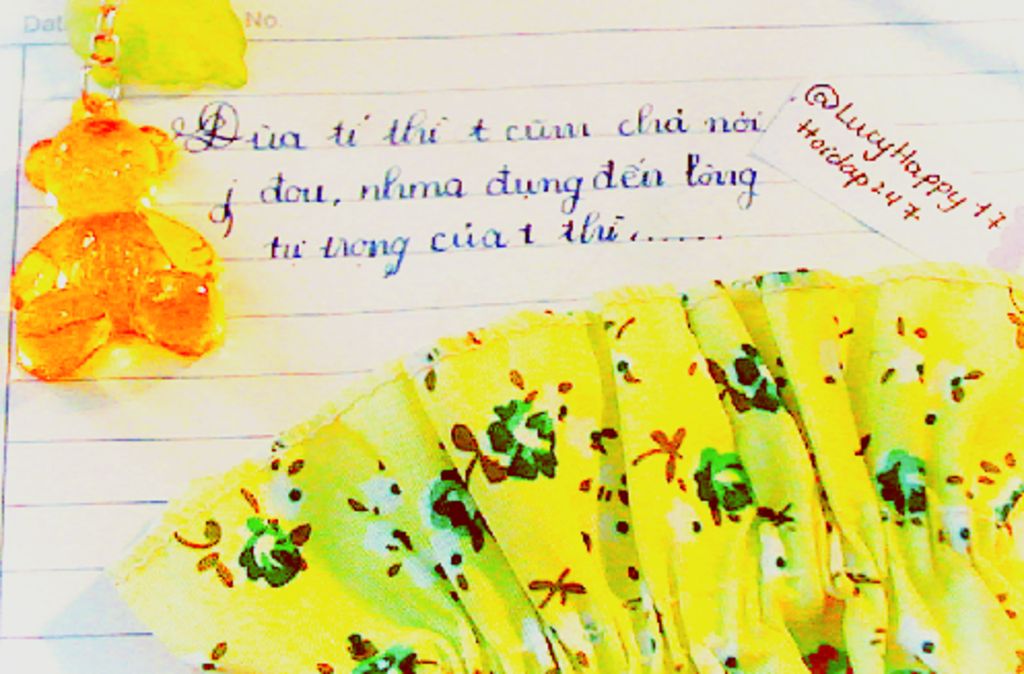 Date No.
Đùa tí thì t cũng chả nói
j đou, nhma đụng đến lòng
tự trọng của t thì.......
@LucyHappy17
Hoidap247